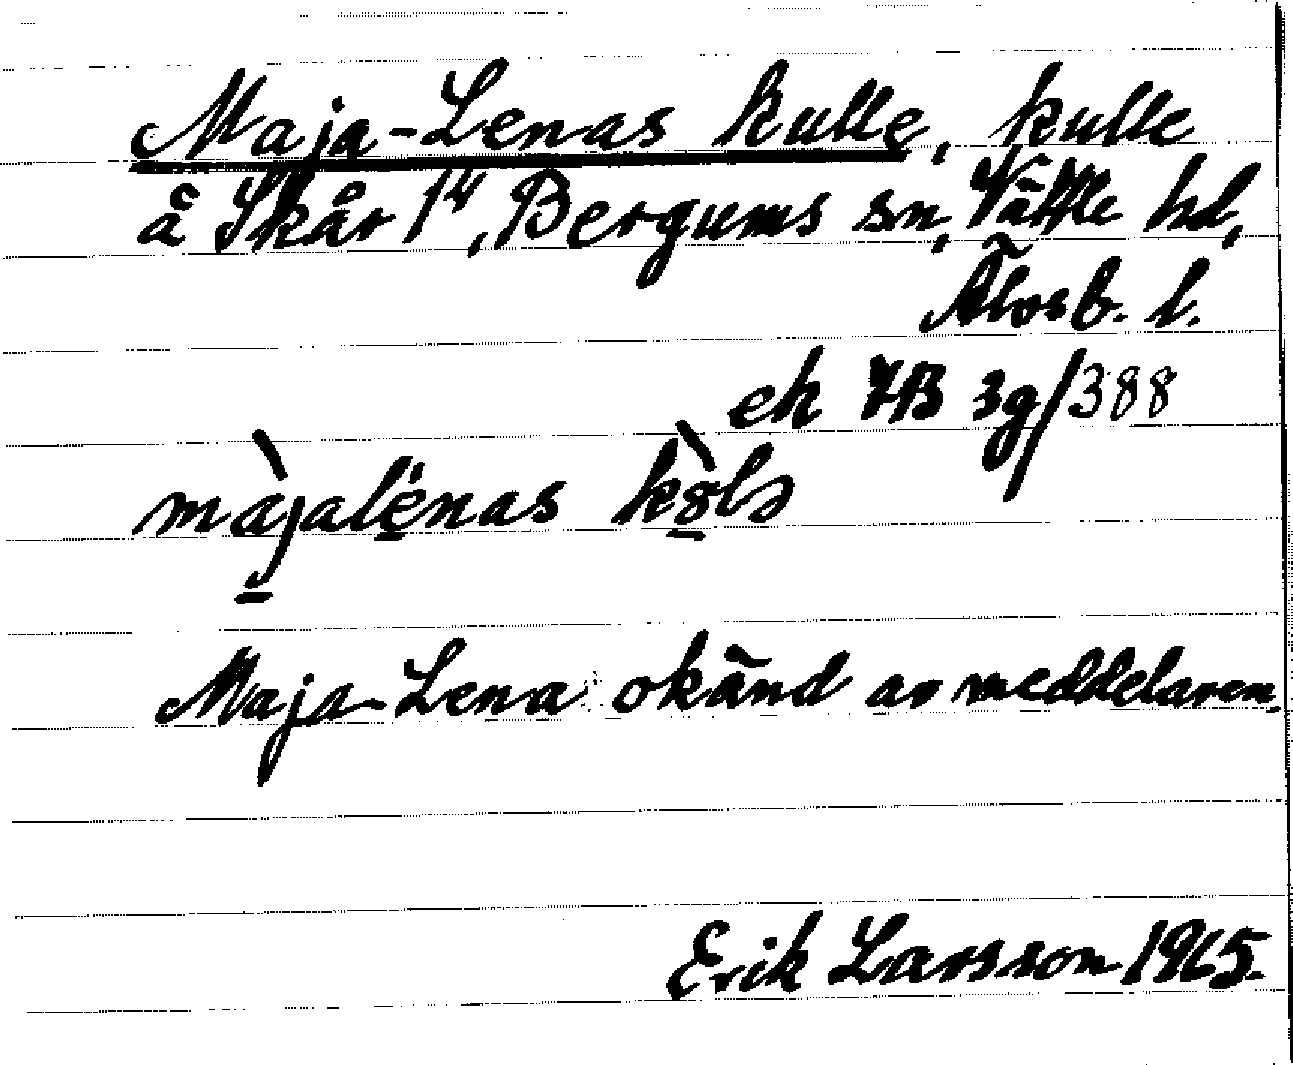 Maja-Lenas kulle, kulle
å Skår 1⁴, Bergums sn, Vättle hd,
Älvsb. l.
ek 7B 3g/388
màjalẹ́nas kò̱lə
Maja-Lena okänd av meddelaren
Erik Larsson 1965.